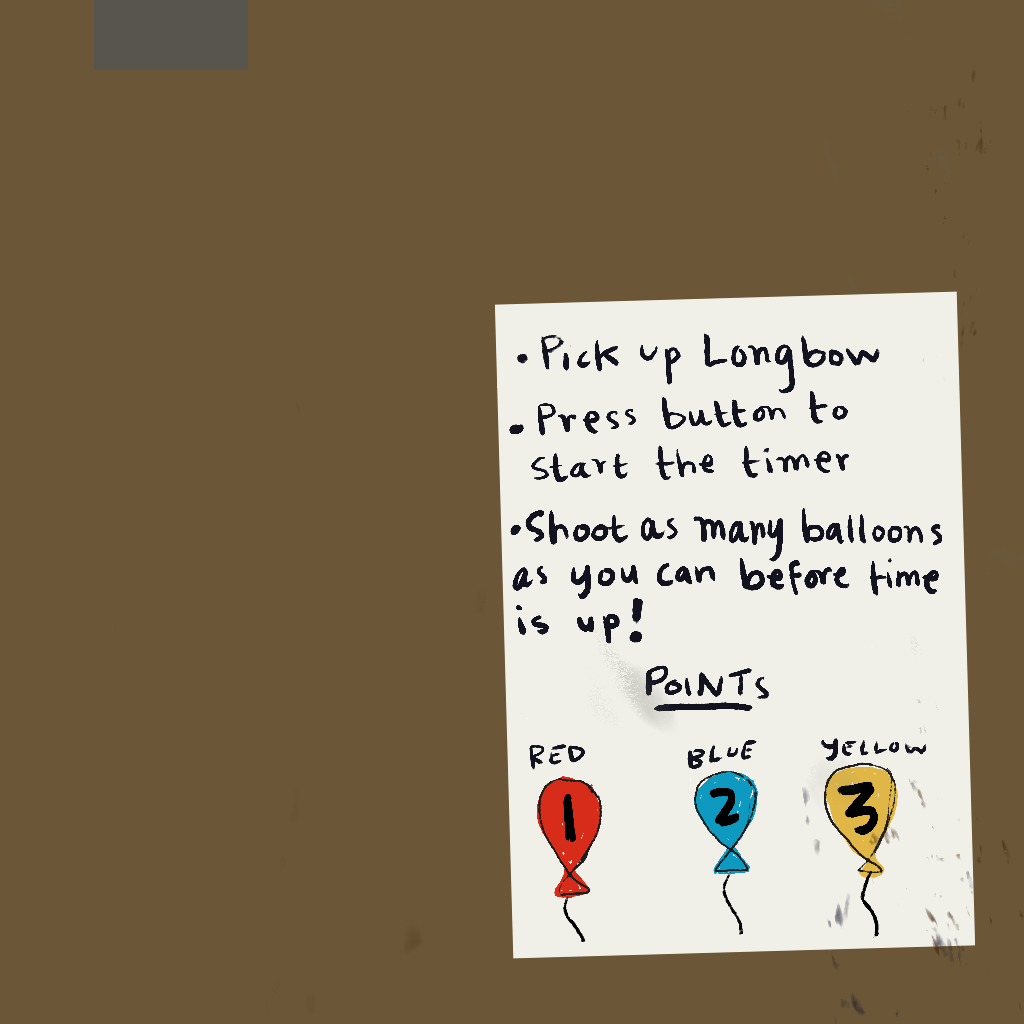 • Pick up Longbow
• Press button to
start the timer
• Shoot as many balloons
as you can before time
is up!
POINTS
RED BLUE YELLOW
1 2 3